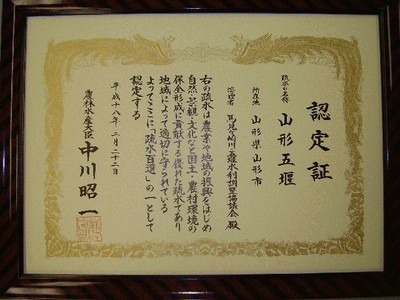 認定証
疏水の名称
山形五堰
所在地 山形県山形市
管理者 馬見ヶ崎川水利調整協議会 殿
右の疏水は農業や地域の振興をはじめ
自然・景観・文化など国土・農村環境の
保全形成に貢献する優れた疏水であり
地域によって適切に守られている
よってここに「疏水百選」の一として
認定する
平成十八年 二月二十二日
農林水産大臣 中川昭一